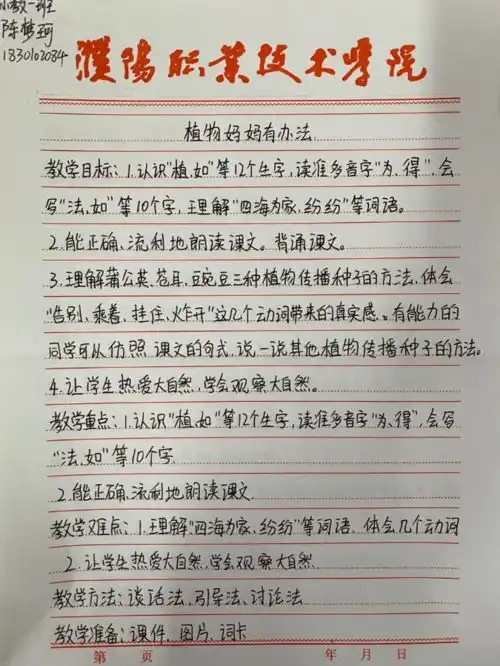 小教一班
陈梦珂
1830102084
濮阳职业技术学院
植物妈妈有办法
教学目标：1.认识"植、如"等12个生字，读准多音字"为、得"，会
写"法、如"等10个字，理解"四海为家、纷纷"等词语。
2.能正确、流利地朗读课文。背诵课文。
3.理解蒲公英、苍耳、豌豆三种植物传播种子的方法，体会
"告别、乘着、挂住、炸开"这几个动词带来的真实感。有能力的
同学可以仿照课文的句式，说一说其他植物传播种子的方法。
4.让学生热爱大自然，学会观察大自然。
教学重点：1.认识"植、如"等12个生字，读准多音字"为、得"，会写
"法、如"等10个字
2.能正确、流利地朗读课文
教学难点：1.理解"四海为家、纷纷"等词语、体会几个动词
2.让学生热爱大自然，学会观察大自然
教学方法：谈话法、引导法、讨论法
教学准备：课件、图片、词卡
第 页 年 月 日